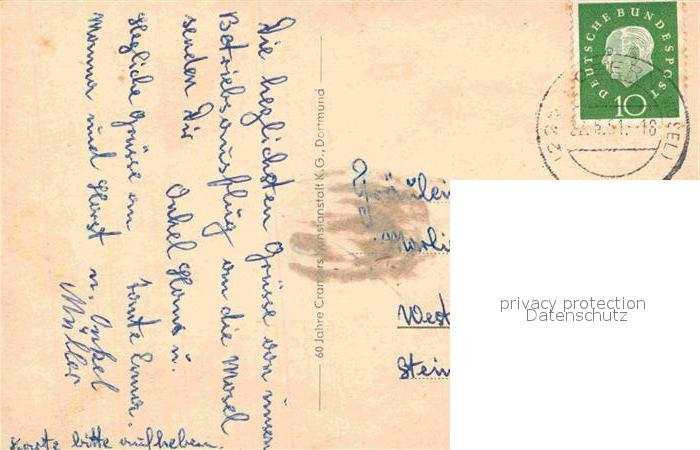 Die herzlichsten Grüsse von unserem
Betriebsausflug an die Mosel
senden Dir
Onkel Hans u.
Tante Erna.
Herzliche Grüsse an
Mamma und Horst u. Onkel
Müller
Karte bitte aufheben.
60 Jahre Cramers Kunstanstalt K.G., Dortmund
DEUTSCHE BUNDESPOST
10
Fräulein
West
Stein
privacy protection
Datenschutz